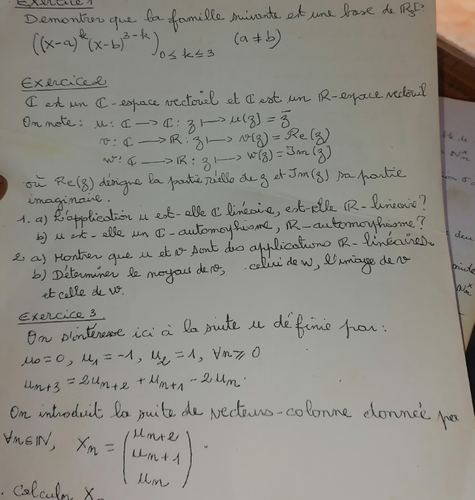 Exercice 1
Démontrer que la famille suivante est une base de
((x-a)^k (x-b)^{3-k})_{0≤k≤3} (a≠b)
Exercice 2
ℂ est un ℂ-espace vectoriel et ℂ est un ℝ-espace vectoriel
On note: u: ℂ → ℂ: z ↦ u(z) = z̄
v: ℂ → ℝ: z ↦ v(z) = Re(z)
w: ℂ → ℝ: z ↦ w(z) = Im(z)
où Re(z) désigne la partie réelle de z et Im(z) sa partie
imaginaire.
1. a) L'application u est-elle ℂ linéaire, est-elle ℝ-linéaire?
b) u est-elle un ℂ-automorphisme, ℝ-automorphisme?
2. a) Montrer que u et v sont des applications ℝ-linéaires.
b) Déterminer le noyau de v, celui de w, l'image de v
et celle de v.
Exercice 3
On s'intéresse ici à la suite u définie par:
u₀=0, u₁=-1, u₂=1, ∀n≥0
u_{n+3} = 2u_{n+2} + u_{n+1} - 2u_n.
On introduit la suite de vecteurs-colonne donnée par
∀n∈ℕ, X_n = (u_{n+2}
u_{n+1}
u_n).
Calculer X